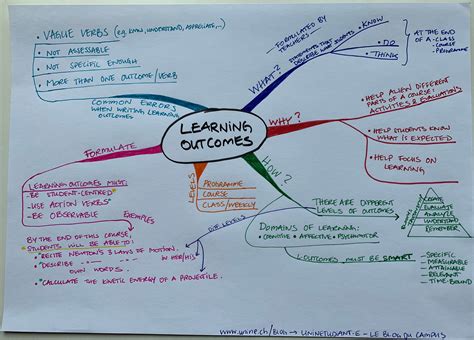 • VAGUE VERBS (e.g. KNOW, UNDERSTAND, APPRECIATE,...)
• NOT ASSESSABLE
• NOT SPECIFIC ENOUGH
• MORE THAN ONE OUTCOME/VERB
COMMON ERRORS
WHEN WRITING LEARNING
OUTCOMES
LEARNING
OUTCOMES
WHAT?
FORMULATED BY
TEACHERS
STATEMENTS THAT
DESCRIBE WHAT STUDENTS
• KNOW
• DO
• THINK
AT THE END
OF A - CLASS
- COURSE
- PROGRAMME
WHY?
• HELP ALIGN DIFFERENT
PARTS OF A COURSE:
ACTIVITIES & EVALUATIONS
• HELP STUDENTS KNOW
WHAT IS EXPECTED
• HELP FOCUS ON
LEARNING
HOW?
THERE ARE DIFFERENT
LEVELS OF OUTCOMES
CREATE
EVALUATE
ANALYZE
UNDERSTAND
REMEMBER
DOMAINS OF LEARNING:
• COGNITIVE • AFFECTIVE • PSYCHOMOTOR
L. OUTCOMES MUST BE SMART
- SPECIFIC
- MEASURABLE
- ATTAINABLE
- RELEVANT
- TIME-BOUND
LEVELS
PROGRAMME
COURSE
CLASS/WEEKLY
LEVELS
FORMULATE
LEARNING OUTCOMES MUST:
- BE STUDENT-CENTRED
- USE ACTION VERBS
- BE OBSERVABLE
EXEMPLES
BY THE END OF THIS COURSE,
STUDENTS WILL BE ABLE TO:
• RECITE NEWTON'S 3 LAWS OF MOTION.
• DESCRIBE IN HER/HIS
OWN WORDS.
• CALCULATE THE KINETIC ENERGY OF A PROJECTILE.
www.unine.ch/blog → UNINETUDIANT·E – LE BLOG DU CAMPUS